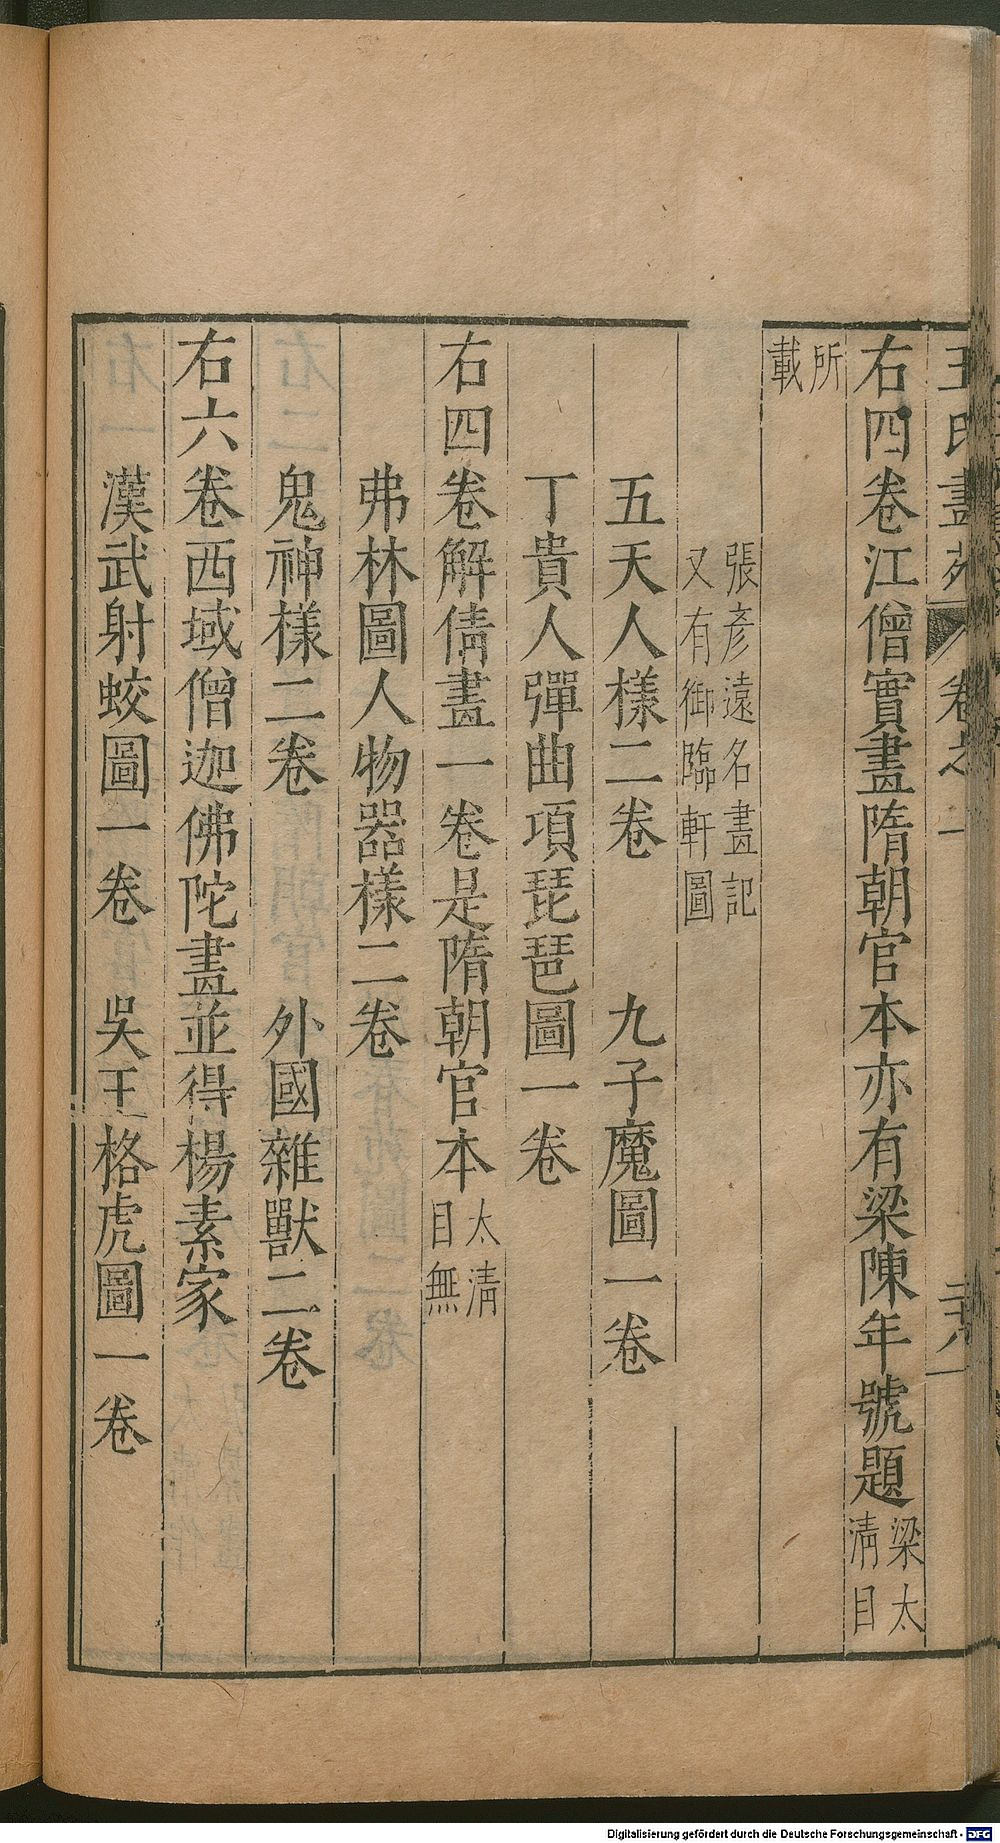 王氏畫苑 卷之一 二十八
右四卷江僧寶畫隋朝官本亦有梁陳年號題梁太清目
所載
張彥遠名畫記又有御臨軒圖
五天人樣二卷 九子魔圖一卷
丁貴人彈曲項琵琶圖一卷
右四卷解倩畫一卷是隋朝官本太清目無
弗林圖人物器樣二卷
鬼神樣二卷 外國雜獸二卷
右六卷西域僧迦佛陀畫並得楊素家
漢武射蛟圖一卷 吳王格虎圖一卷
Digitalisierung gefördert durch die Deutsche Forschungsgemeinschaft - DFG